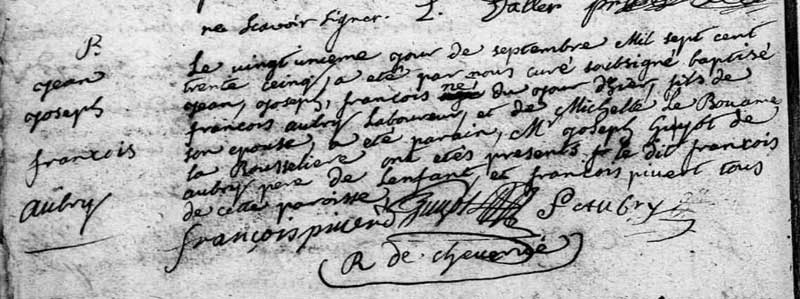 ne scavoir signer.
P.
jean
joseph
françois
aübry
Le vingt unieme jour de septembre Mil sept cent
trente cinq, a eté par nous curé soubsigné baptisé
jean, joseph, françois né du jour d'hier, fils de
françois aubry Laboureur, et de Michelle Le Bouame
son epouse, a eté parain, Mr joseph Guyot de
la Rousseliere ont etés presents le dit françois
aubry pere de lenfant, et françois picent tous
de cette paroisse,
françois Guyot f aubry
R de chevenge